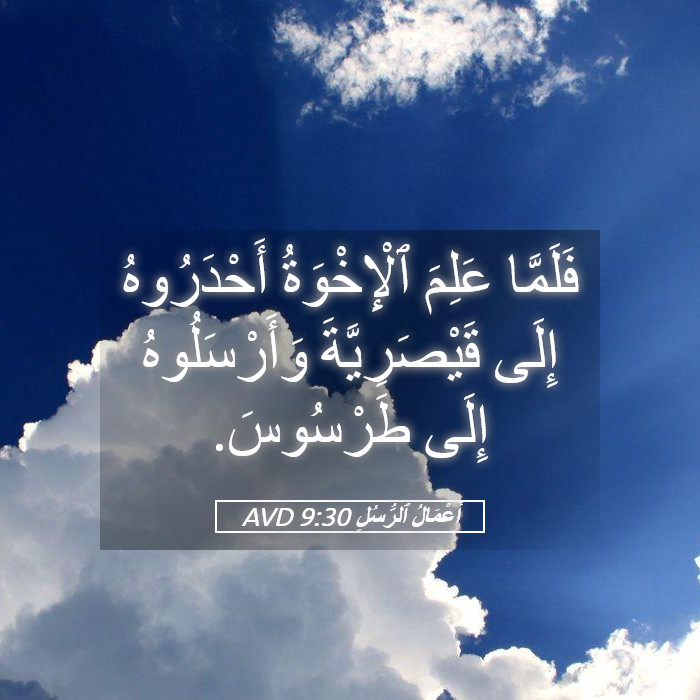 فَلَمَّا عَلِمَ ٱلْإِخْوَةُ أَحْدَرُوهُ
إِلَى قَيْصَرِيَّةَ وَأَرْسَلُوهُ
إِلَى طَرْسُوسَ.
أَعْمَالُ ٱلرُّسُلِ 9:30 AVD